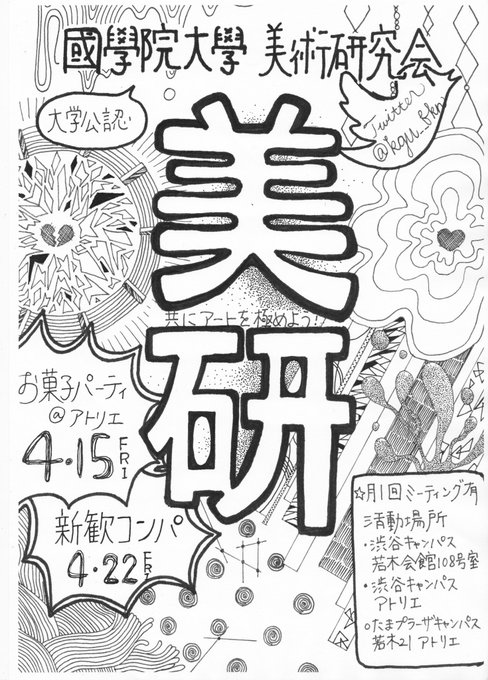 國學院大學 美術研究会
大学公認
Twitter
@kgu_bkn
美研
共にアートを極めよう!?
お菓子パーティ
@アトリエ
4・15 FRI
新歓コンパ
4・22 FRI
☆月1回ミーティング有
活動場所
・渋谷キャンパス
若木会館108号室
・渋谷キャンパス
アトリエ
○たまプラーザキャンパス
若木21 アトリエ